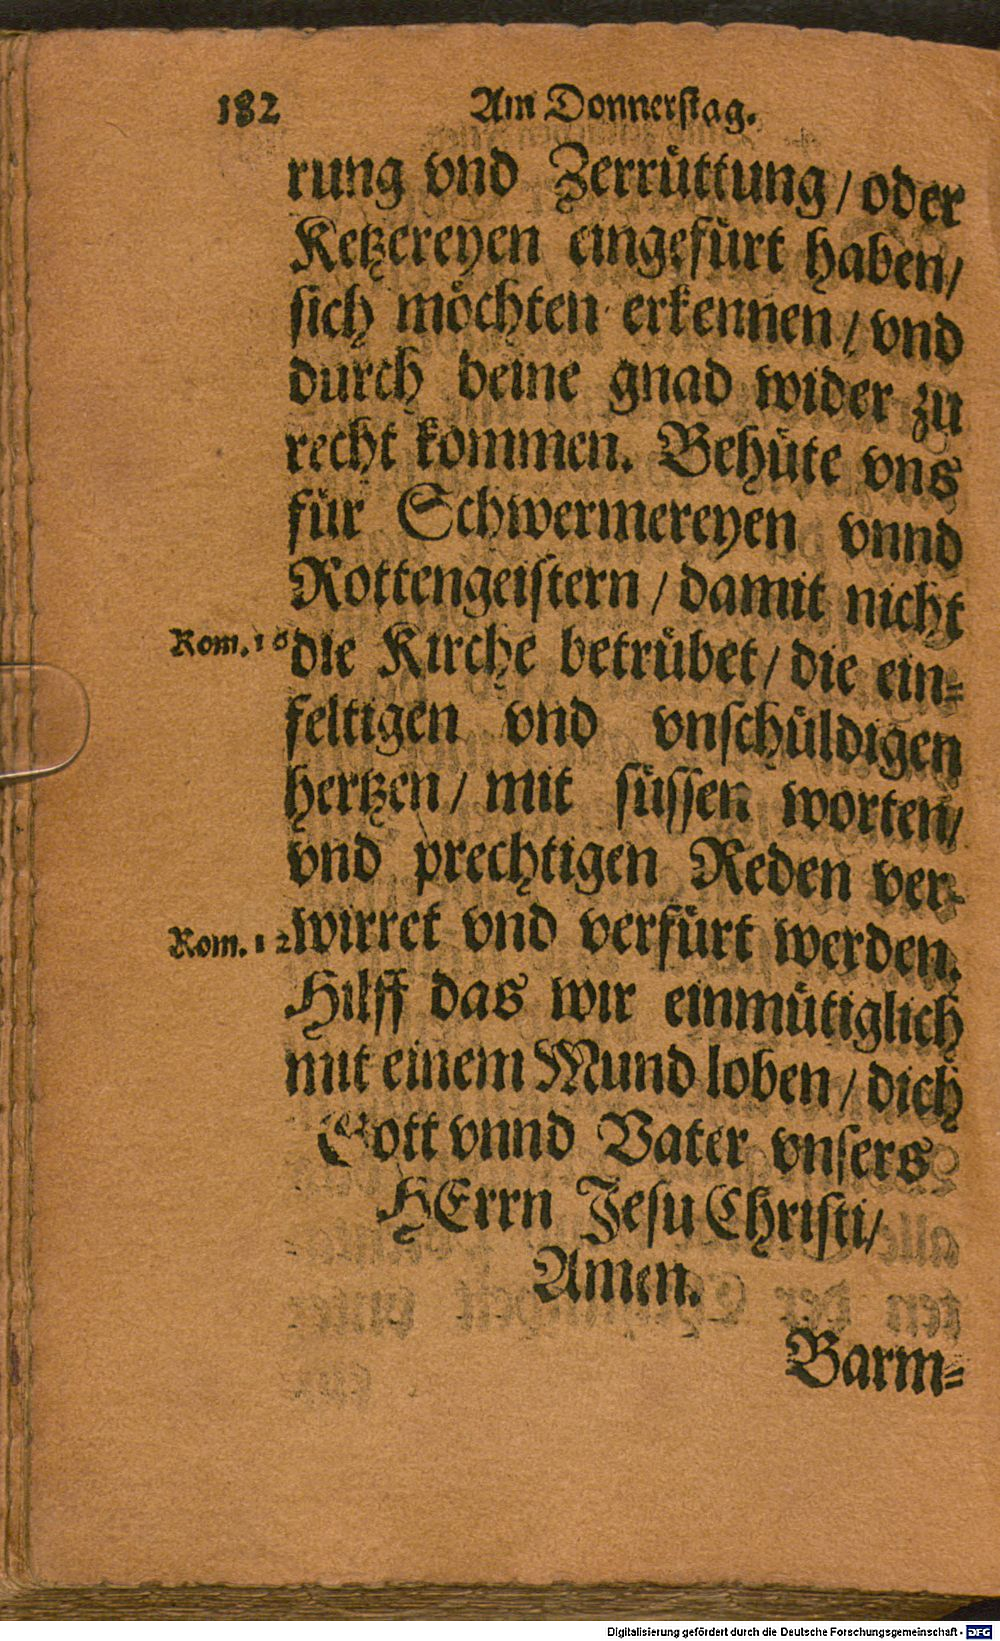 182 Am Donnerstag.
rung vnd Zerrüttung / oder
Ketzereyen eingefürt haben /
sich möchten erkennen / vnd
durch deine gnad wider zu
recht kommen. Behüte vns
für Schwermereyen vnnd
Rottengeistern / damit nicht
Rom. 16 die Kirche betrübet / die ein=
feltigen vnd vnschüldigen
hertzen / mit süssen worten /
vnd prechtigen Reden ver=
Rom. 12 wirret vnd verfürt werden.
Hilff das wir einmütiglich
mit einem Mund loben / dich
Gott vnnd Vater vnsers
HErrn Jesu Christi /
Amen.
Barm=
Digitalisierung gefördert durch die Deutsche Forschungsgemeinschaft - DFG